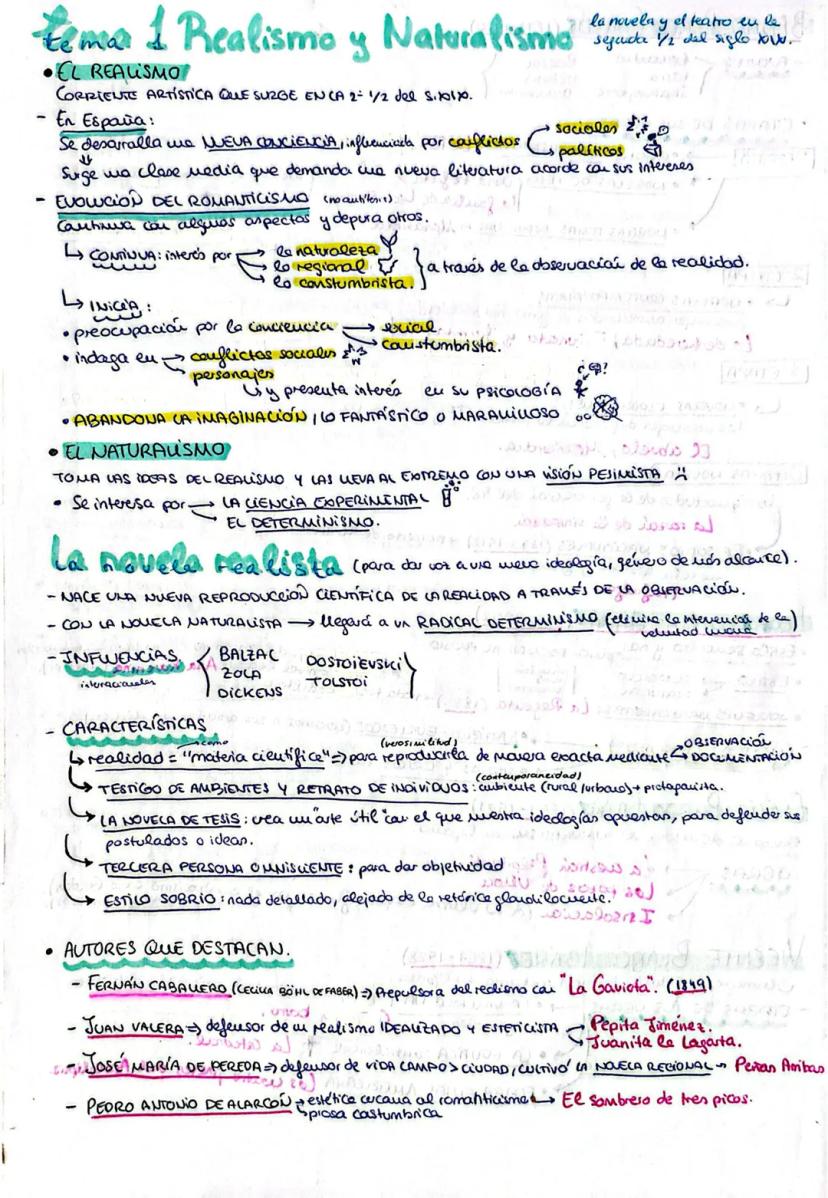 tema 1 Realismo y Naturalismo
la novela y el teatro en la
segunda 1/2 del siglo XIX.
• EL REALISMO
CORRIENTE ARTÍSTICA QUE SURGE EN LA 2ª 1/2 del S.XIX.
- En España:
Se desarrolla una NUEVA CONCIENCIA, influenciada por conflictos sociales
políticos
Surge una clase media que demanda una nueva literatura acorde con sus intereses
- EVOLUCIÓN DEL ROMANTICISMO (no antítesis)
Continua con algunos aspectos y depura otros.
↳ CONTINUA: interés por → la naturaleza
→ lo regional
→ lo constumbrista.
a través de la observación de la realidad.
↳ INICIA:
• preocupación por la conciencia → social
→ constumbrista.
• indaga en → conflictos sociales
personajes
↳ y presenta interés en su PSICOLOGÍA
• ABANDONA LA IMAGINACIÓN, LO FANTÁSTICO O MARAVILLOSO
• EL NATURALISMO
TOMA LAS IDEAS DEL REALISMO Y LAS LLEVA AL EXTREMO CON UNA VISIÓN PESIMISTA
• Se interesa por → LA CIENCIA EXPERIMENTAL
→ EL DETERMINISMO.
La novela realista (para dar voz a una nueva ideología, género de más alcance).
- NACE UNA NUEVA REPRODUCCIÓN CIENTÍFICA DE LA REALIDAD A TRAVÉS DE LA OBSERVACIÓN.
- CON LA NOVELA NATURALISTA → llegará a un RADICAL DETERMINISMO (elimina la intervención de la
voluntad humana)
- INFLUENCIAS
internacionales
BALZAC
ZOLA
DICKENS
DOSTOIEVSKI
TOLSTOI
- CARACTERÍSTICAS
como (verosimilitud)
↳ realidad = "materia científica" ⇒ para reproducirla de manera exacta mediante → OBSERVACIÓN
→ DOCUMENTACIÓN
(contemporaneidad)
↳ TESTIGO DE AMBIENTES Y RETRATO DE INDIVIDUOS: ambiente (rural/urbano) + protagonista.
↳ LA NOVELA DE TESIS: crea un "arte útil" con el que muestra ideologías opuestas, para defender sus
postulados o ideas.
↳ TERCERA PERSONA OMNISCIENTE: para dar objetividad
↳ ESTILO SOBRIO: nada detallado, alejado de la retórica glandilocuente.
• AUTORES QUE DESTACAN.
- FERNÁN CABALLERO (CECILIA BÖHL DE FABER) ⇒ Propulsora del realismo con "La Gaviota". (1849)
- JUAN VALERA ⇒ defensor de un realismo IDEALIZADO Y ESTETICISTA → Pepita Jiménez.
→ Juanita la Lagarta.
- JOSÉ MARÍA DE PEREDA ⇒ defensor de VIDA CAMPO > CIUDAD, CULTIVÓ LA NOVELA REGIONAL → Penas Arribas
- PEDRO ANTONIO DE ALARCÓN → estética cercana al romanticismo → El sombrero de tres picos.
→ prosa costumbrica